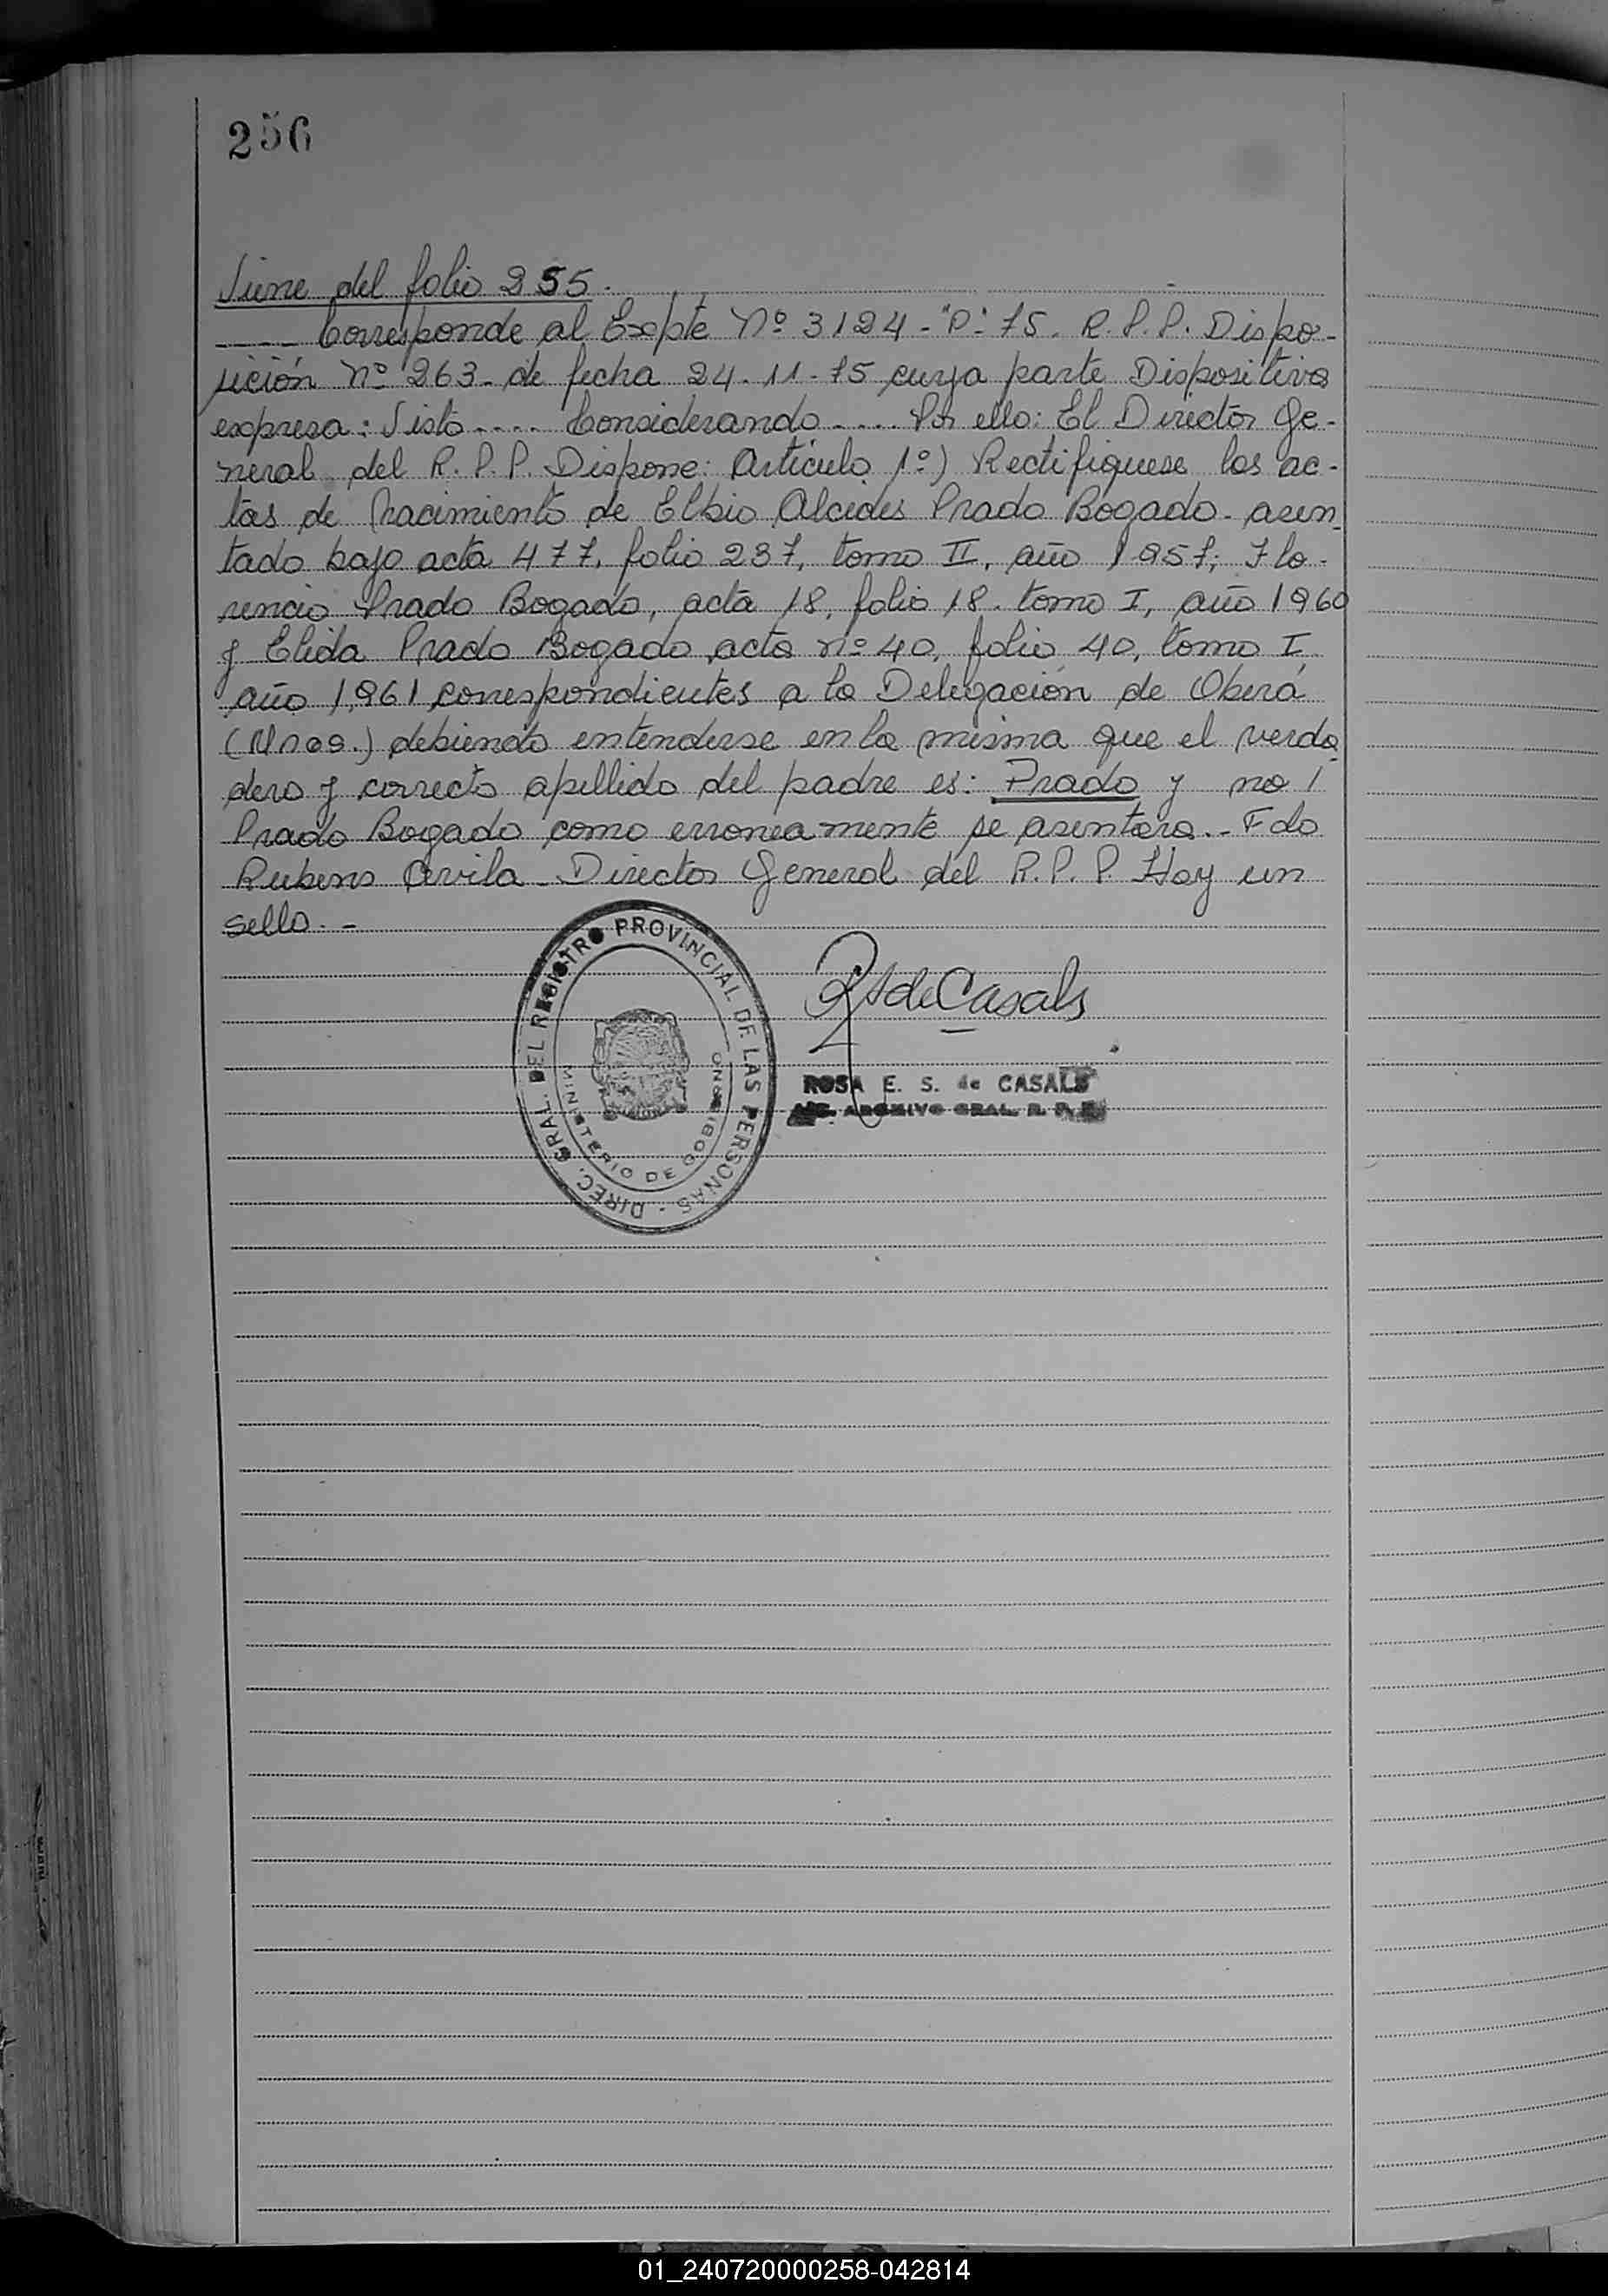 256
Viene del folio 255.
---- Corresponde al Expte Nº 3124-"P"-75. R.P.P. Dispo-
sición Nº 263- de fecha 24-11-75 cuya parte Dispositiva
expresa: Visto.... Considerando.... Por ello: El Director Ge-
neral del R.P.P. Dispone: Artículo 1º) Rectifiquese las ac-
tas de nacimiento de Elbio Alcides Prado Bogado- asen
tado bajo acta 477, folio 237, tomo II, año 1957; Flo-
rencio Prado Bogado, acta 18, folio 18. tomo I, año 1960
y Elida Prado Bogado acta nº 40, folio 40, tomo I,
año 1,961 correspondientes a la Delegación de Oberá
(Mnes.) debiendo entenderse en la misma que el verda
dero y correcto apellido del padre es: Prado y no
Prado Bogado como erroneamente se asentara.- Fdo
Rubens Avila- Director General del R.P.P. Hay un
sello.-
DIREC. GRAL. DEL REGISTRO PROVINCIAL DE LAS PERSONAS -
MINISTERIO DE GOBIERNO
de Casals
ROSA E. S. de CASALS
ARCHIVO GRAL. R. P. P.
01_240720000258-042814